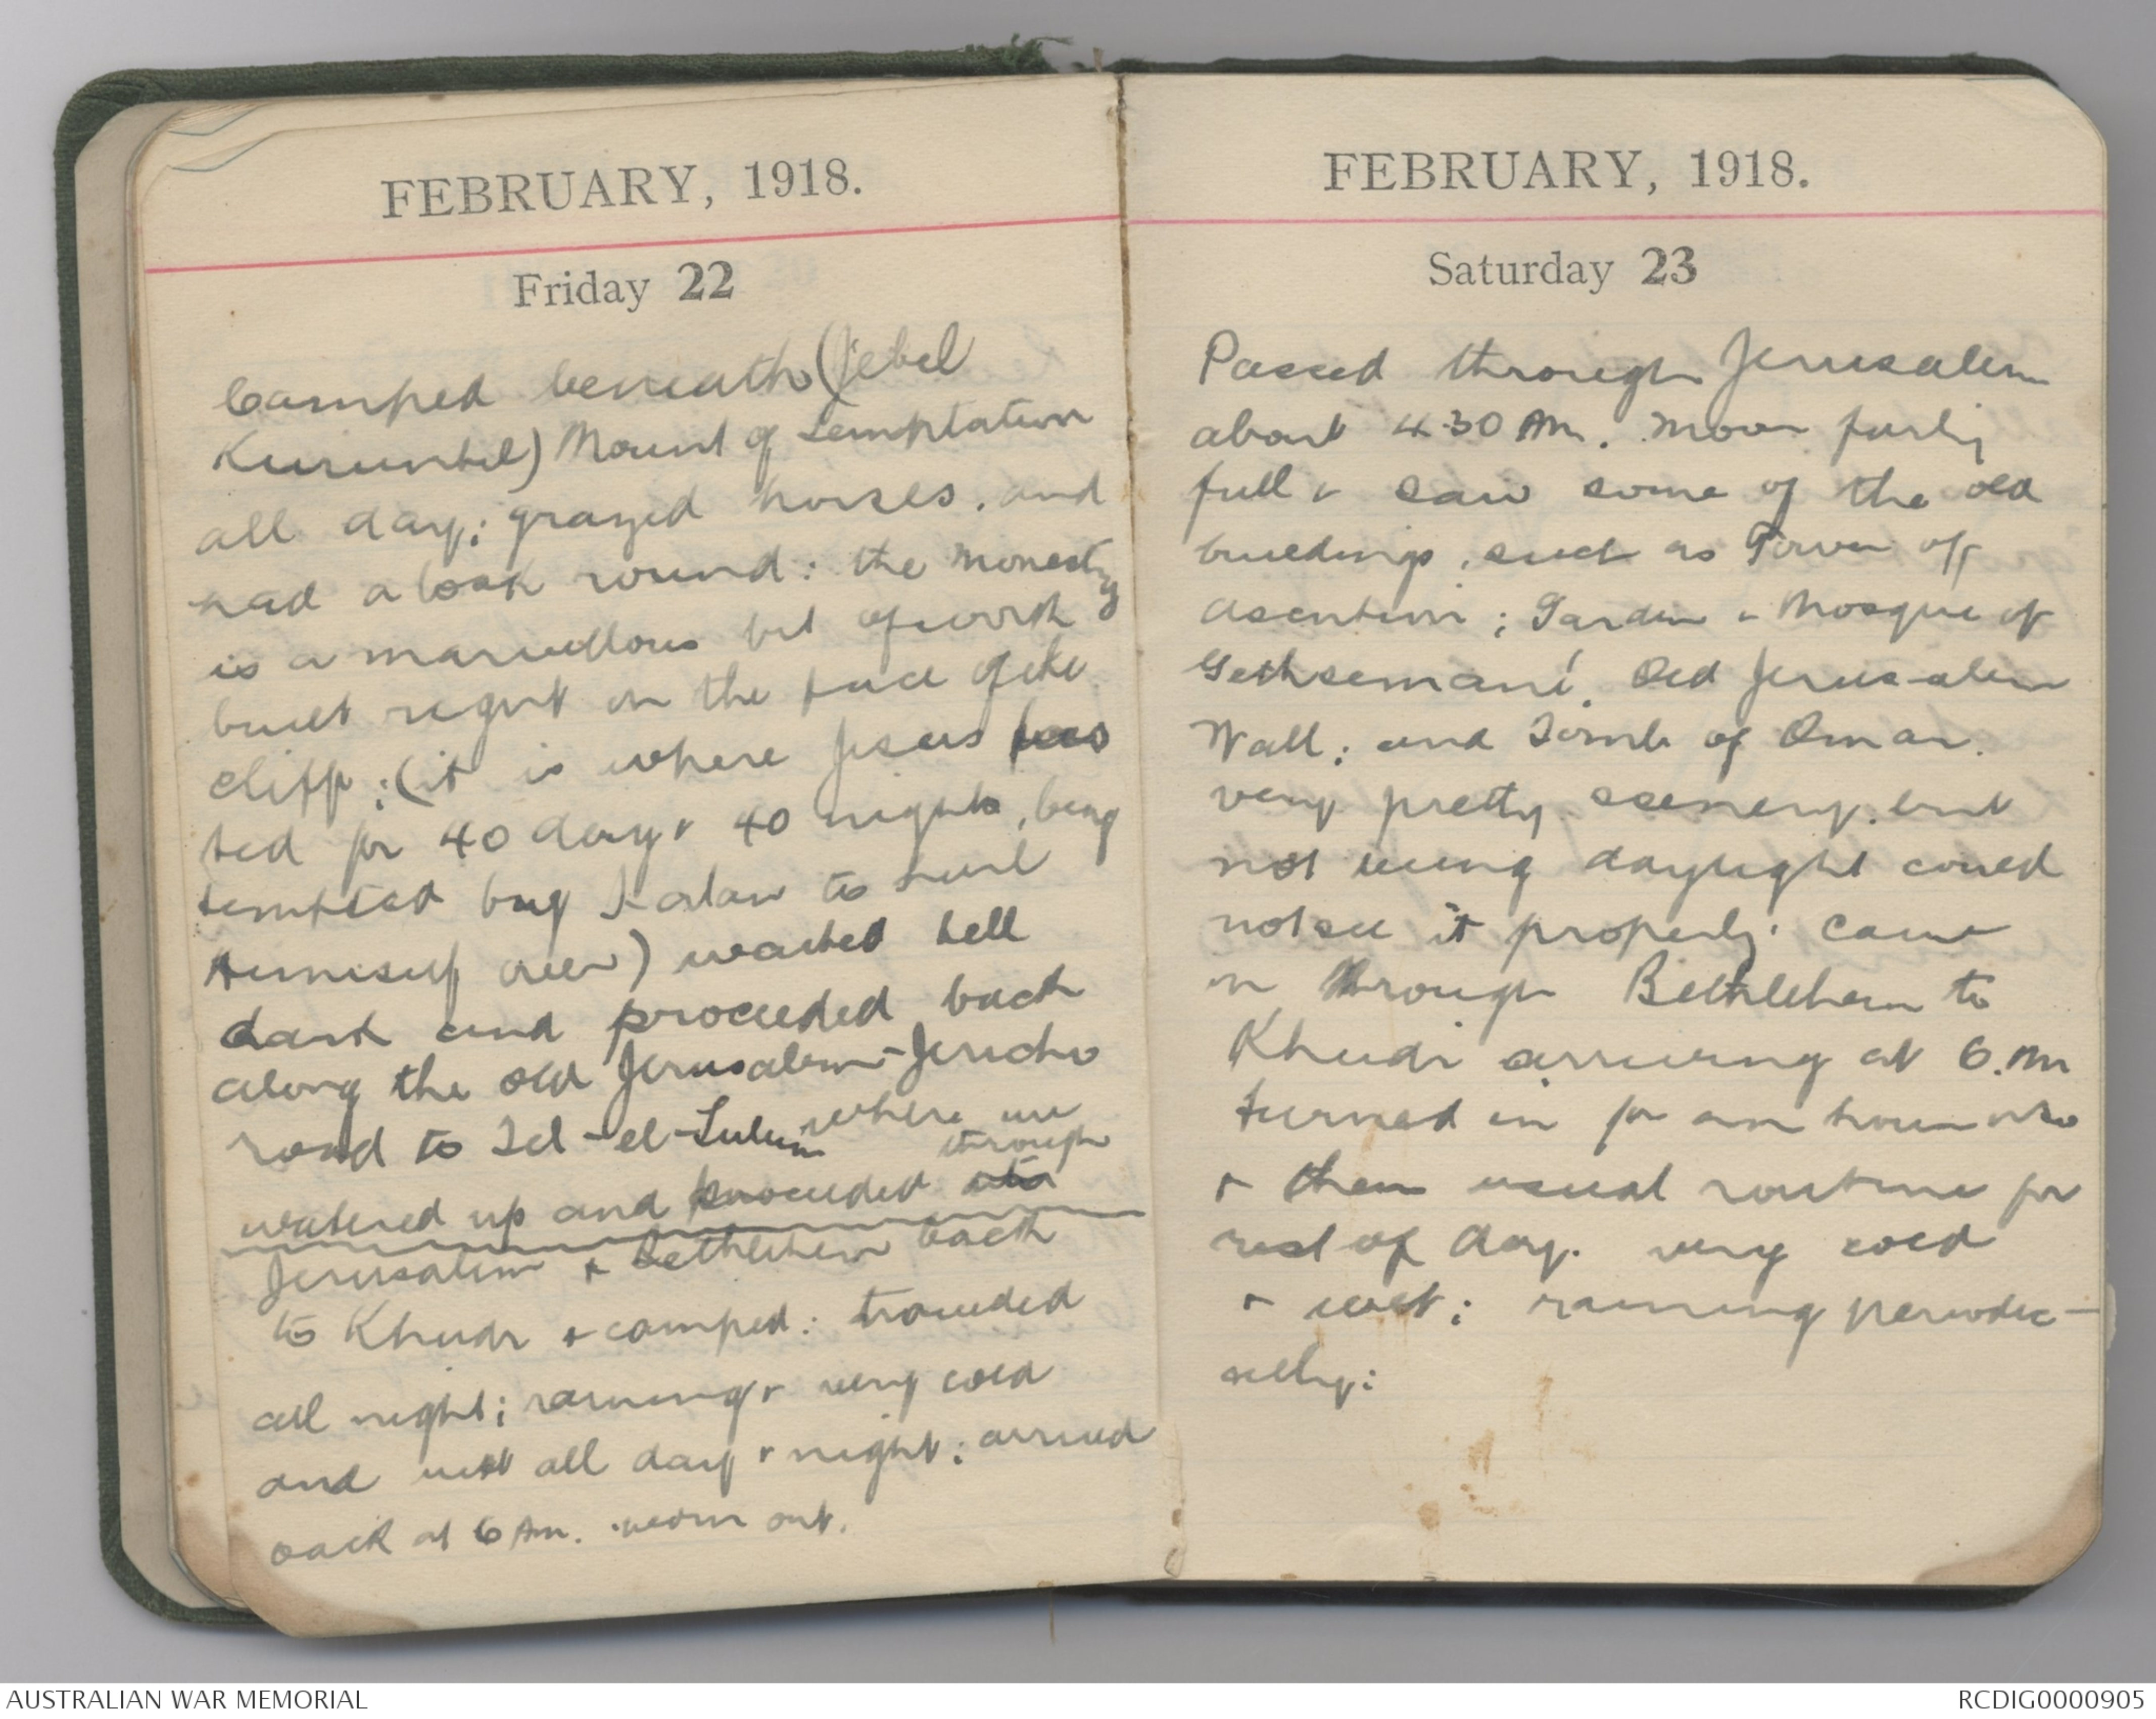 FEBRUARY, 1918.
Friday 22
Camped beneath (Jebel
Kuruntul) Mount of Temptation
all day; grazed horses. and
had a look round: the Monestry
is a marvellous bit of work
built right on the face of the
cliff; (it is where Jesus fas
ted for 40 day & 40 nights, being
tempted buy Satan to
himself over) waited till
dark and proceeded back
along the old Jerusalem-Jericho
road to Tel-el-Sulum where we
through
watered up and proceeded into
Jerusalem & Bethlehem back
to Khudr & camped: traveled
all night; raining & very cold
and wet all day & night: arrived
back at 6 Am. worn out.
FEBRUARY, 1918.
Saturday 23
Passed through Jerusalem
about 4.30 Am. Moon fairly
full & saw some of the old
buildings, such as Tower of
Asention; Garden & Mosque of
Gethsemané, Old Jerusalem
Wall; and Tomb of Omar.
very pretty scenery, but
not being daylight could
not see it properly. Came
on through Bethlehem to
Khudr arriving at 6. Am
turned in for an hour or so
& then usual routine for
rest of day. very cold
& wet; raining periodic-
ally:
AUSTRALIAN WAR MEMORIAL
RCDIG0000905